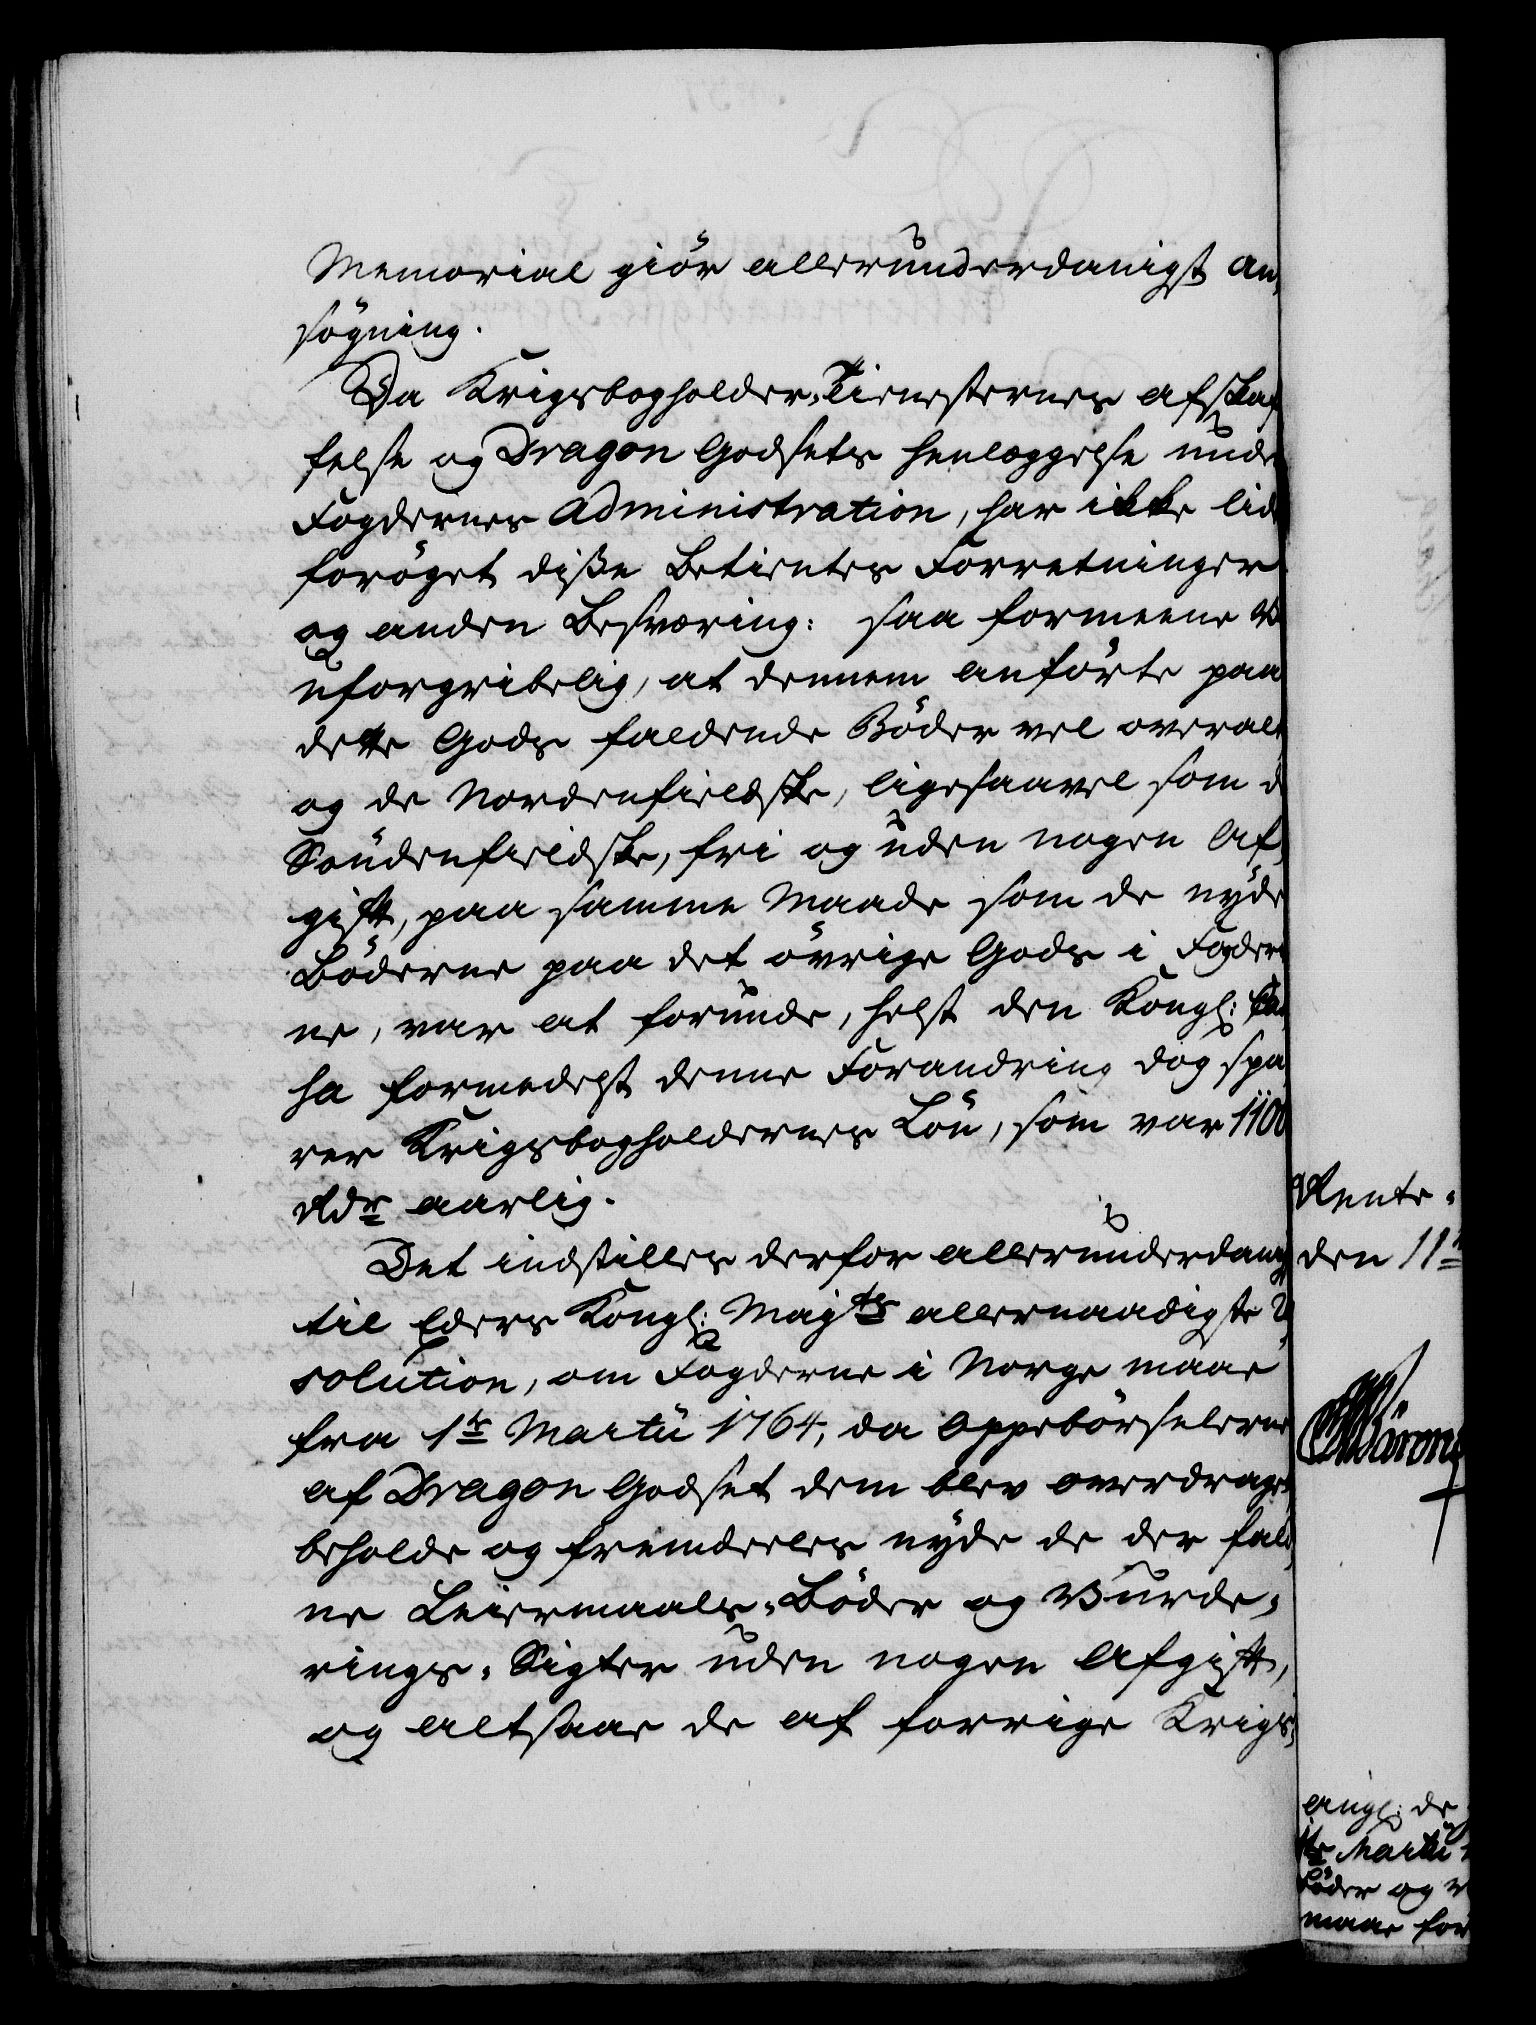 Memorial giör allerunderdanigst an,
søgning.
Da Krigsbogholder-Tienesternes afskaf
felse og Dragon Godsets henlæggelse unde
Fogdernes Administration, har ikke lid
forøget disse Betientes Forretninger
og anden Besværing: saa formeene V
uforgribelig, at dennem anførte paa
dette Gods faldende Bøder vel overalt
og de Nordenfieldske, ligesaavel som d
Søndenfieldske, fri og uden nogen Af,
gift, paa samme Maade som de nyde
Bøderne paa det øvrige Gods i Fogderi
ne, var at forunde, helst den Kongl: Cas
sa formedelst denne Forandring dog spa,
rer Krigsbogholdernes Løn, som var 1100
Rdr aarlig.
Det indstilles derfor allerunderdanig
til Eders Kongl: Majts allernaadigste
solution, om Fogderne i Norge maae
fra 1te Martii 1764, da Oppebørselerne
af Dragon Godset dem blev overdraget,
beholde og fremdeeles nyde de der fald,
ne Leiermaals-Bøder og Vurde-
rings-Sigter uden nogen Afgift,
og altsaa de af forrige Krigs,
Rente-
den 11t
angl: de
1te Martii
Bøder og V
maae for